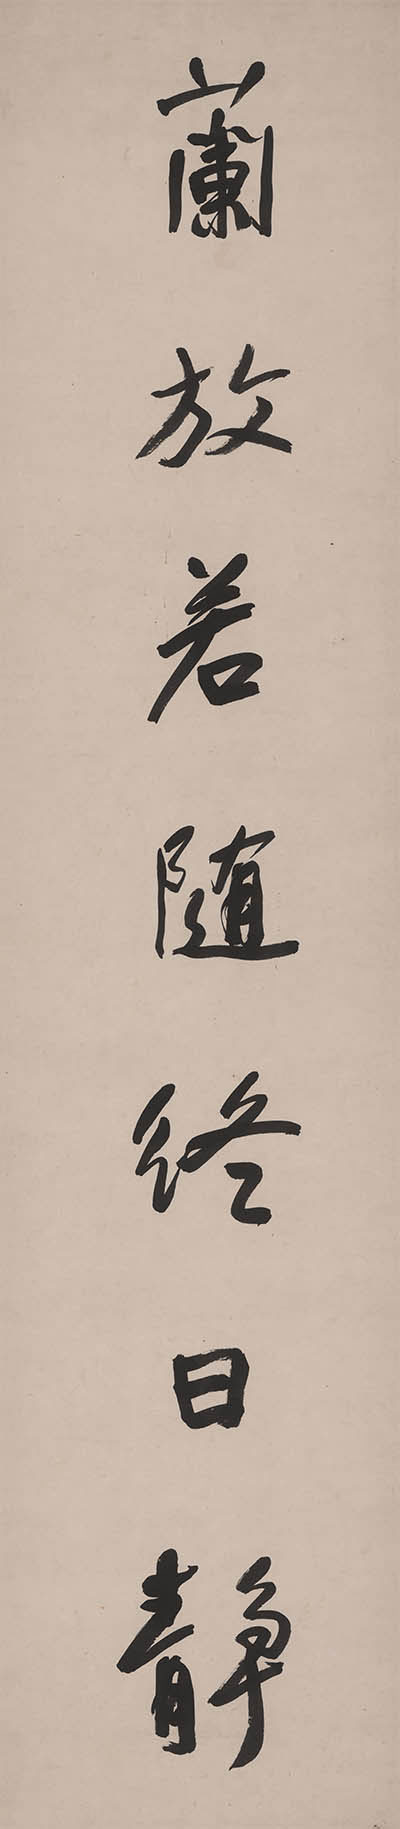 蘭放若随終日靜